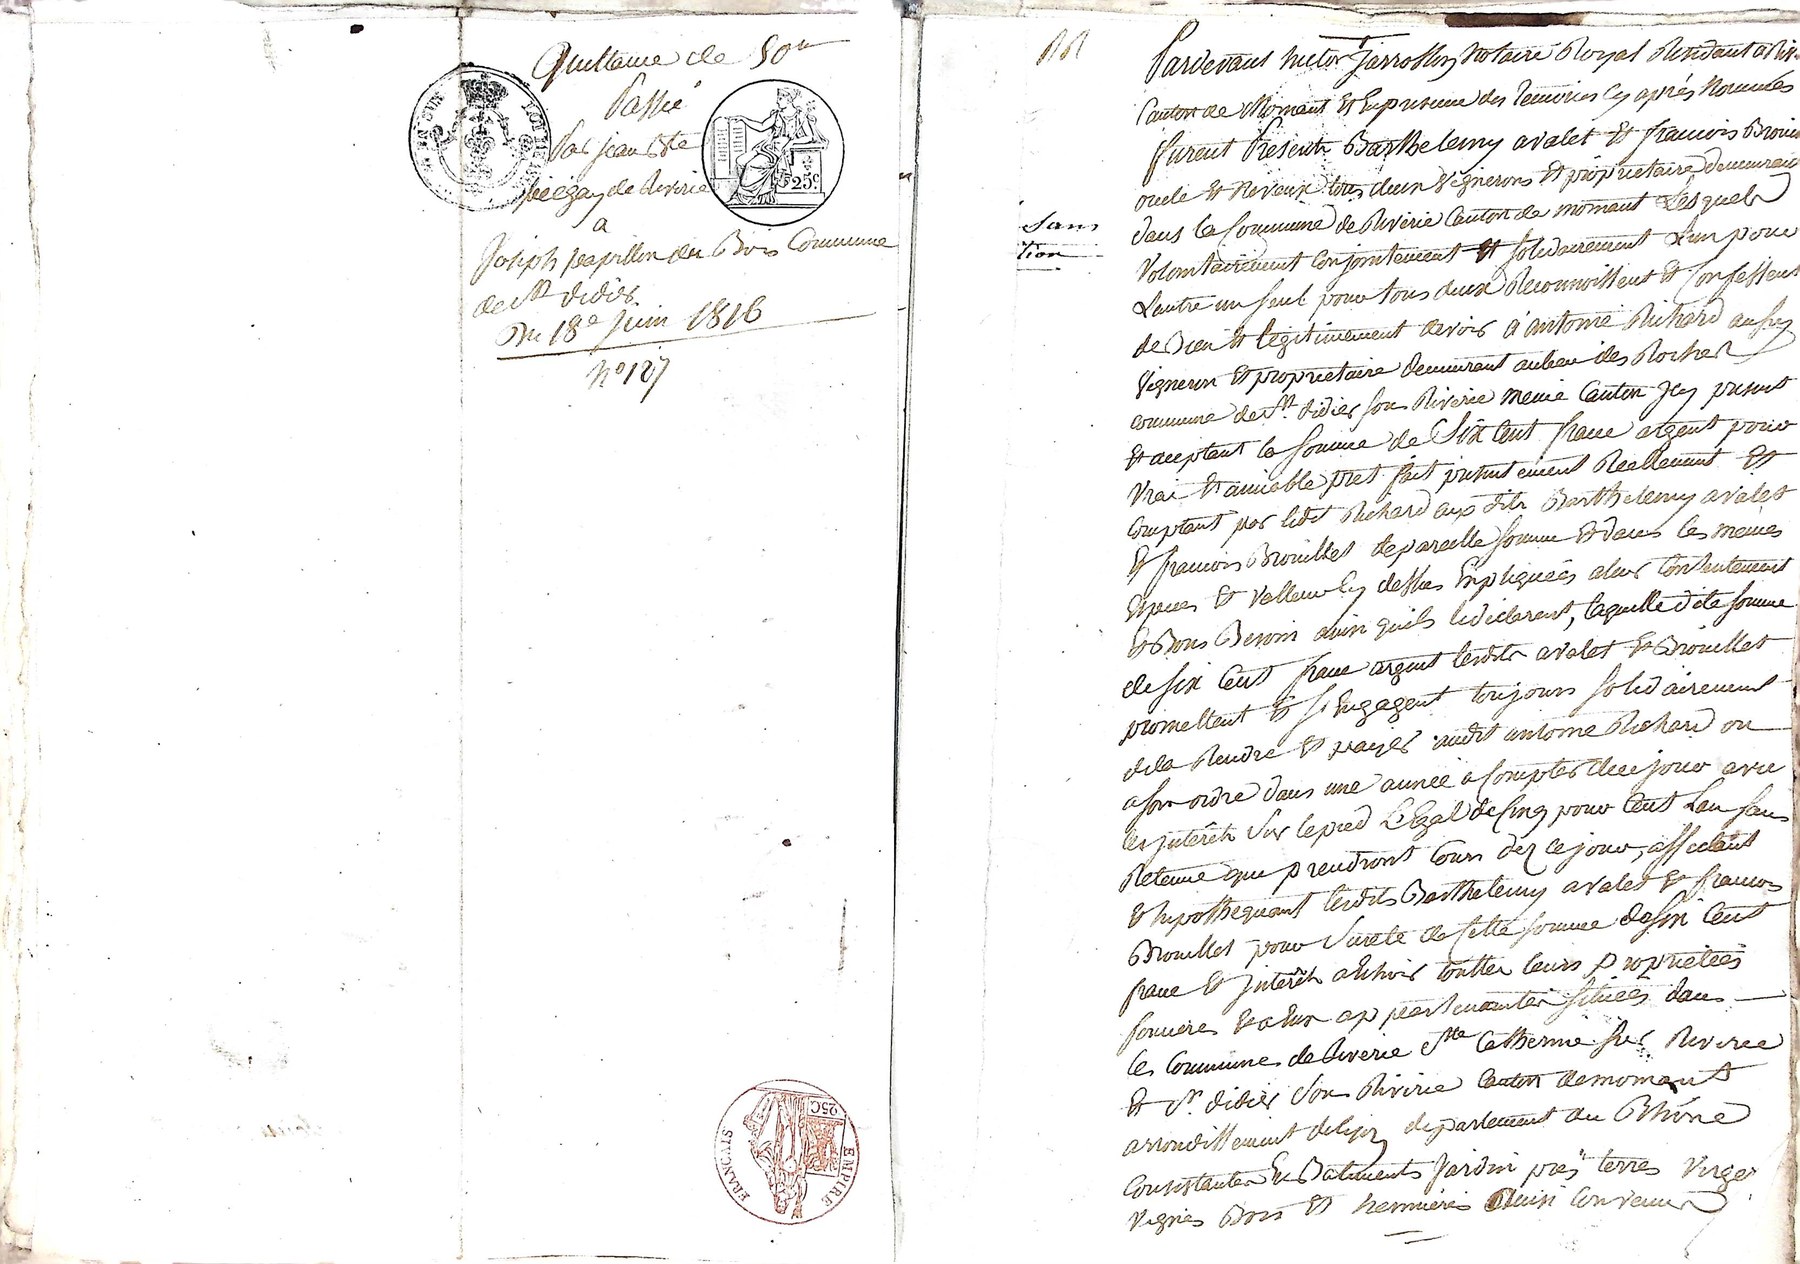 Quittance de 50ₗₗ
Passé
Par jean Bte
piégay de Riverie
a
Joseph papillon du Bois Commune
de St didier
Du 18e Juin 1816
No 127
25c
EMPIRE
FRANCAIS
25C
sans
tion
Pardevant Victor Jarrosson Notaire Royal Residant a Riv
Canton de Mornant Et En presence des Temoins Cy après Nommés
furent Présents Barthelemy avalet Et francois Brouil
oncle Et Neveux tous deux Vignerons Et propriétaire demeurant
dans la Commune de Riverie Canton de mornant Lesquels
Volontairement Conjointement Et solidairement L'un pour
L'autre un seul pour tous deux Reconnoissent Et Confessent
de Bien Et legitimement devoir a antoine Richard aussy
Vigneron Et propriétaire demeurant au lieu des Rocher
commune de St didier sous Riverie meme Canton Icy présent
Et aceptant la somme de Six Cent franc argent pour
Vrai Et amiable pret fait présentement Réellement Et
Comptant par ledit Richard aux dits Barthelemy avalet
Et francois Brouillet de pareille somme Et dans les mêmes
Especes Et Valleur Cy dessus Expliquées a leur Contentement
Et Bons Besoin ainsi quils le déclarent, laquelle dite somme
de six Cent franc argent lesdits avalet Et Brouillet
promettent Et s'Engagent toujours solidairement
de la Rendre Et payer audit antoine Richard ou
a son ordre dans une année a Compter de ce jour avec
les jnterêts Sur le pied Légal de Cinq pour Cent L'an sans
Retenue qui prendront Cours dez ce jour, affectant
Et hypothequant lesdits Barthelemy avalet Et francois
Brouillet pour Sureté de Cette somme de six Cent
franc Et jnterêts a Echoir touttes leurs proprietées
foncieres Et a Eux appartenantes situées dans
les Communes de Riverie Ste Catherine sur Riverie
Et St didier Sous Riverie Canton de mornant
arrondissement de lyon département du Rhône
Consistantes En Batiments Jardin prés terres Verger
Vignes Bois Et hermières Ainsi Convenu